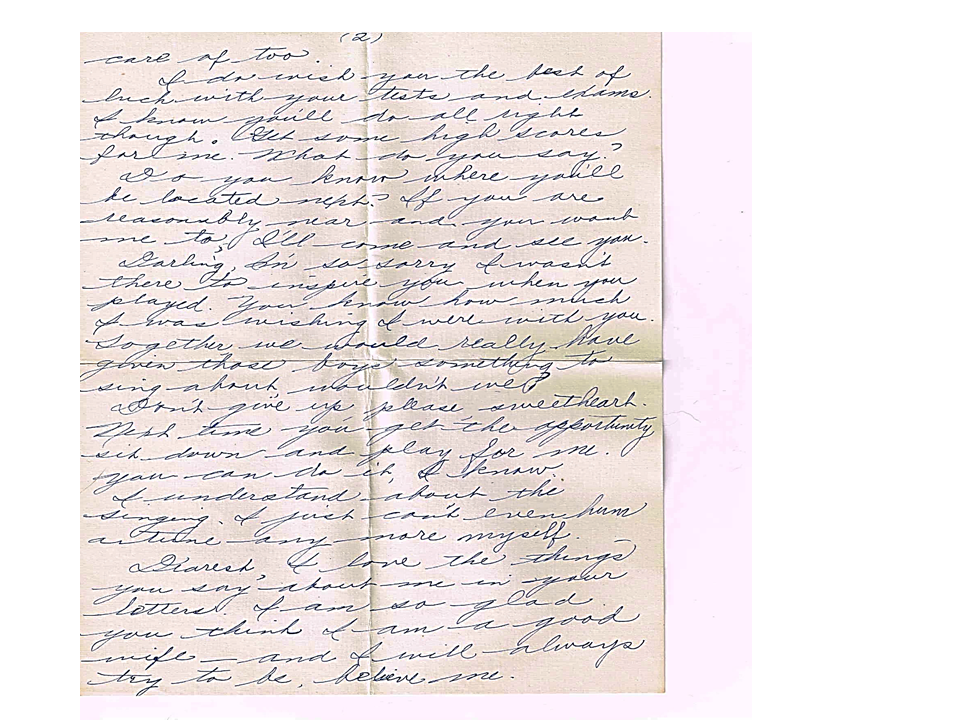 (2)
care of too.
I do wish you the best of
luck with your tests and exams.
I know you'll do all right
though. Get some high scores
for me. What do you say?
Do you know where you'll
be located next? If you are
reasonably near and you want
me to, I'll come and see you.
Darling, I'm so sorry I wasn't
there to inspire you when you
played. You know how much
I was wishing I were with you.
Together we would really have
given those boys something to
sing about wouldn't we?
Don't give up please, sweetheart.
Next time you get the opportunity
sit down and play for me.
You can do it, I know.
I understand about the
singing. I just can't even hum
a tune any more myself.
Dearest, I love the things
you say about me in your
letters. I am so glad
you think I am a good
wife — and I will always
try to be, believe me.